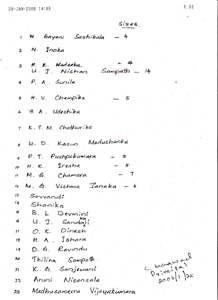 23-JAN-2008 14:49
P.03
Sizes
1 W Gayani Sashikala - 4
2 N. Inoka
3 H. K. Nadeeka
U. I. Nishan Sampath - 14
4 P. A. Sunila
5 H. V. Champika - 5
6 A. Udeshika
7 K. T. M. Chathurika
8 W. D. Kasun Madushanka
9 P. T. Pushpakumara - 5
10 H. K. Iresha - 5
11 M. G. Chamara - 7
12 M. G. Vishwa Janaka - 6
13 Sevvandi
14 Shanika
15 B. L. Devmini
16 U. I. Sandali
17 O. K. Dinesh
18 H. A. Ishara
19 D. G. Ravindu
20 Thilina Sampath
21 K. G. Sanjewani
22 Aruni Nisansala
23 Madhusameera Vijayakumara
Principal